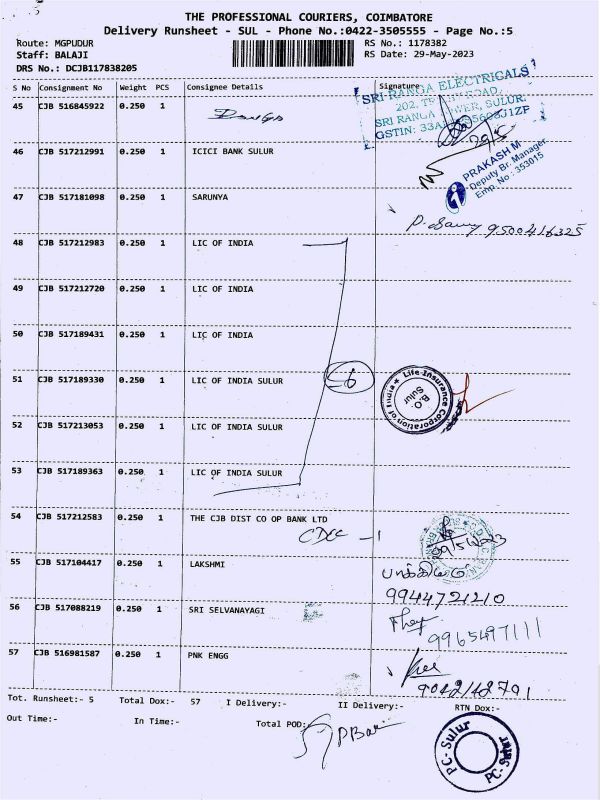 THE PROFESSIONAL COURIERS, COIMBATORE
Delivery Runsheet - SUL - Phone No.:0422-3505555 - Page No.:5
Route: MGPUDUR RS No.: 1178382
Staff: BALAJI RS Date: 29-May-2023
DRS No.: DCJB117838205
S No Consignment No Weight PCS Consignee Details Signature
45 CJB 516845922 0.250 1
SRI RANGA ELECTRICALS
SRI RANGA TOWER, SULUR.
46 CJB 517212991 0.250 1 ICICI BANK SULUR
PRAKASH M
Deputy Br. Manager
Emp. No : 353015
47 CJB 517181098 0.250 1 SARUNYA
9500416325
48 CJB 517212983 0.250 1 LIC OF INDIA
49 CJB 517212720 0.250 1 LIC OF INDIA
50 CJB 517189431 0.250 1 LIC OF INDIA
51 CJB 517189330 0.250 1 LIC OF INDIA SULUR
6
Life Insurance Corporation of India
B.O
Sulur
52 CJB 517213053 0.250 1 LIC OF INDIA SULUR
53 CJB 517189363 0.250 1 LIC OF INDIA SULUR
54 CJB 517212583 0.250 1 THE CJB DIST CO OP BANK LTD
CDCC - 1
29/5/2023
55 CJB 517104417 0.250 1 LAKSHMI
பாக்கியம்
9944721210
56 CJB 517088219 0.250 1 SRI SELVANAYAGI
9965497111
57 CJB 516981587 0.250 1 PNK ENGG
9042148791
Tot. Runsheet:- 5 Total Dox:- 57 I Delivery:- II Delivery:- RTN Dox:-
Out Time:- In Time:- Total POD:-
PC-Sulur
PC-Sulur